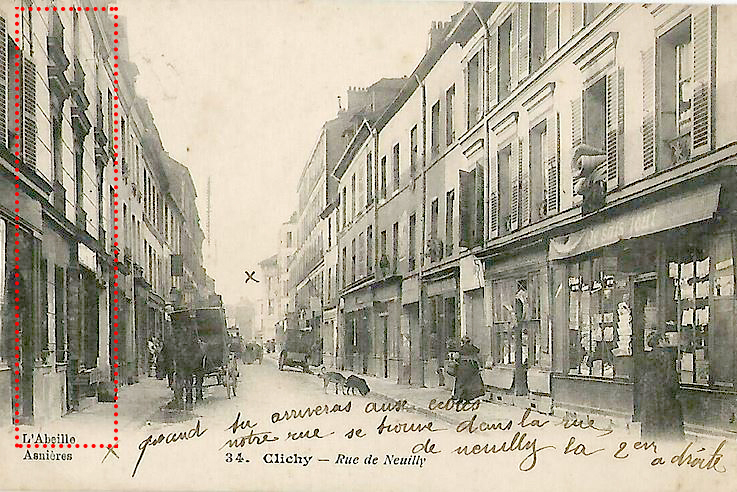 Je sais tout
L'Abeille
Asnières
quand tu arriveras aux écoles
notre rue se trouve dans la rue
de neuilly la 2em a droite
34. Clichy – Rue de Neuilly